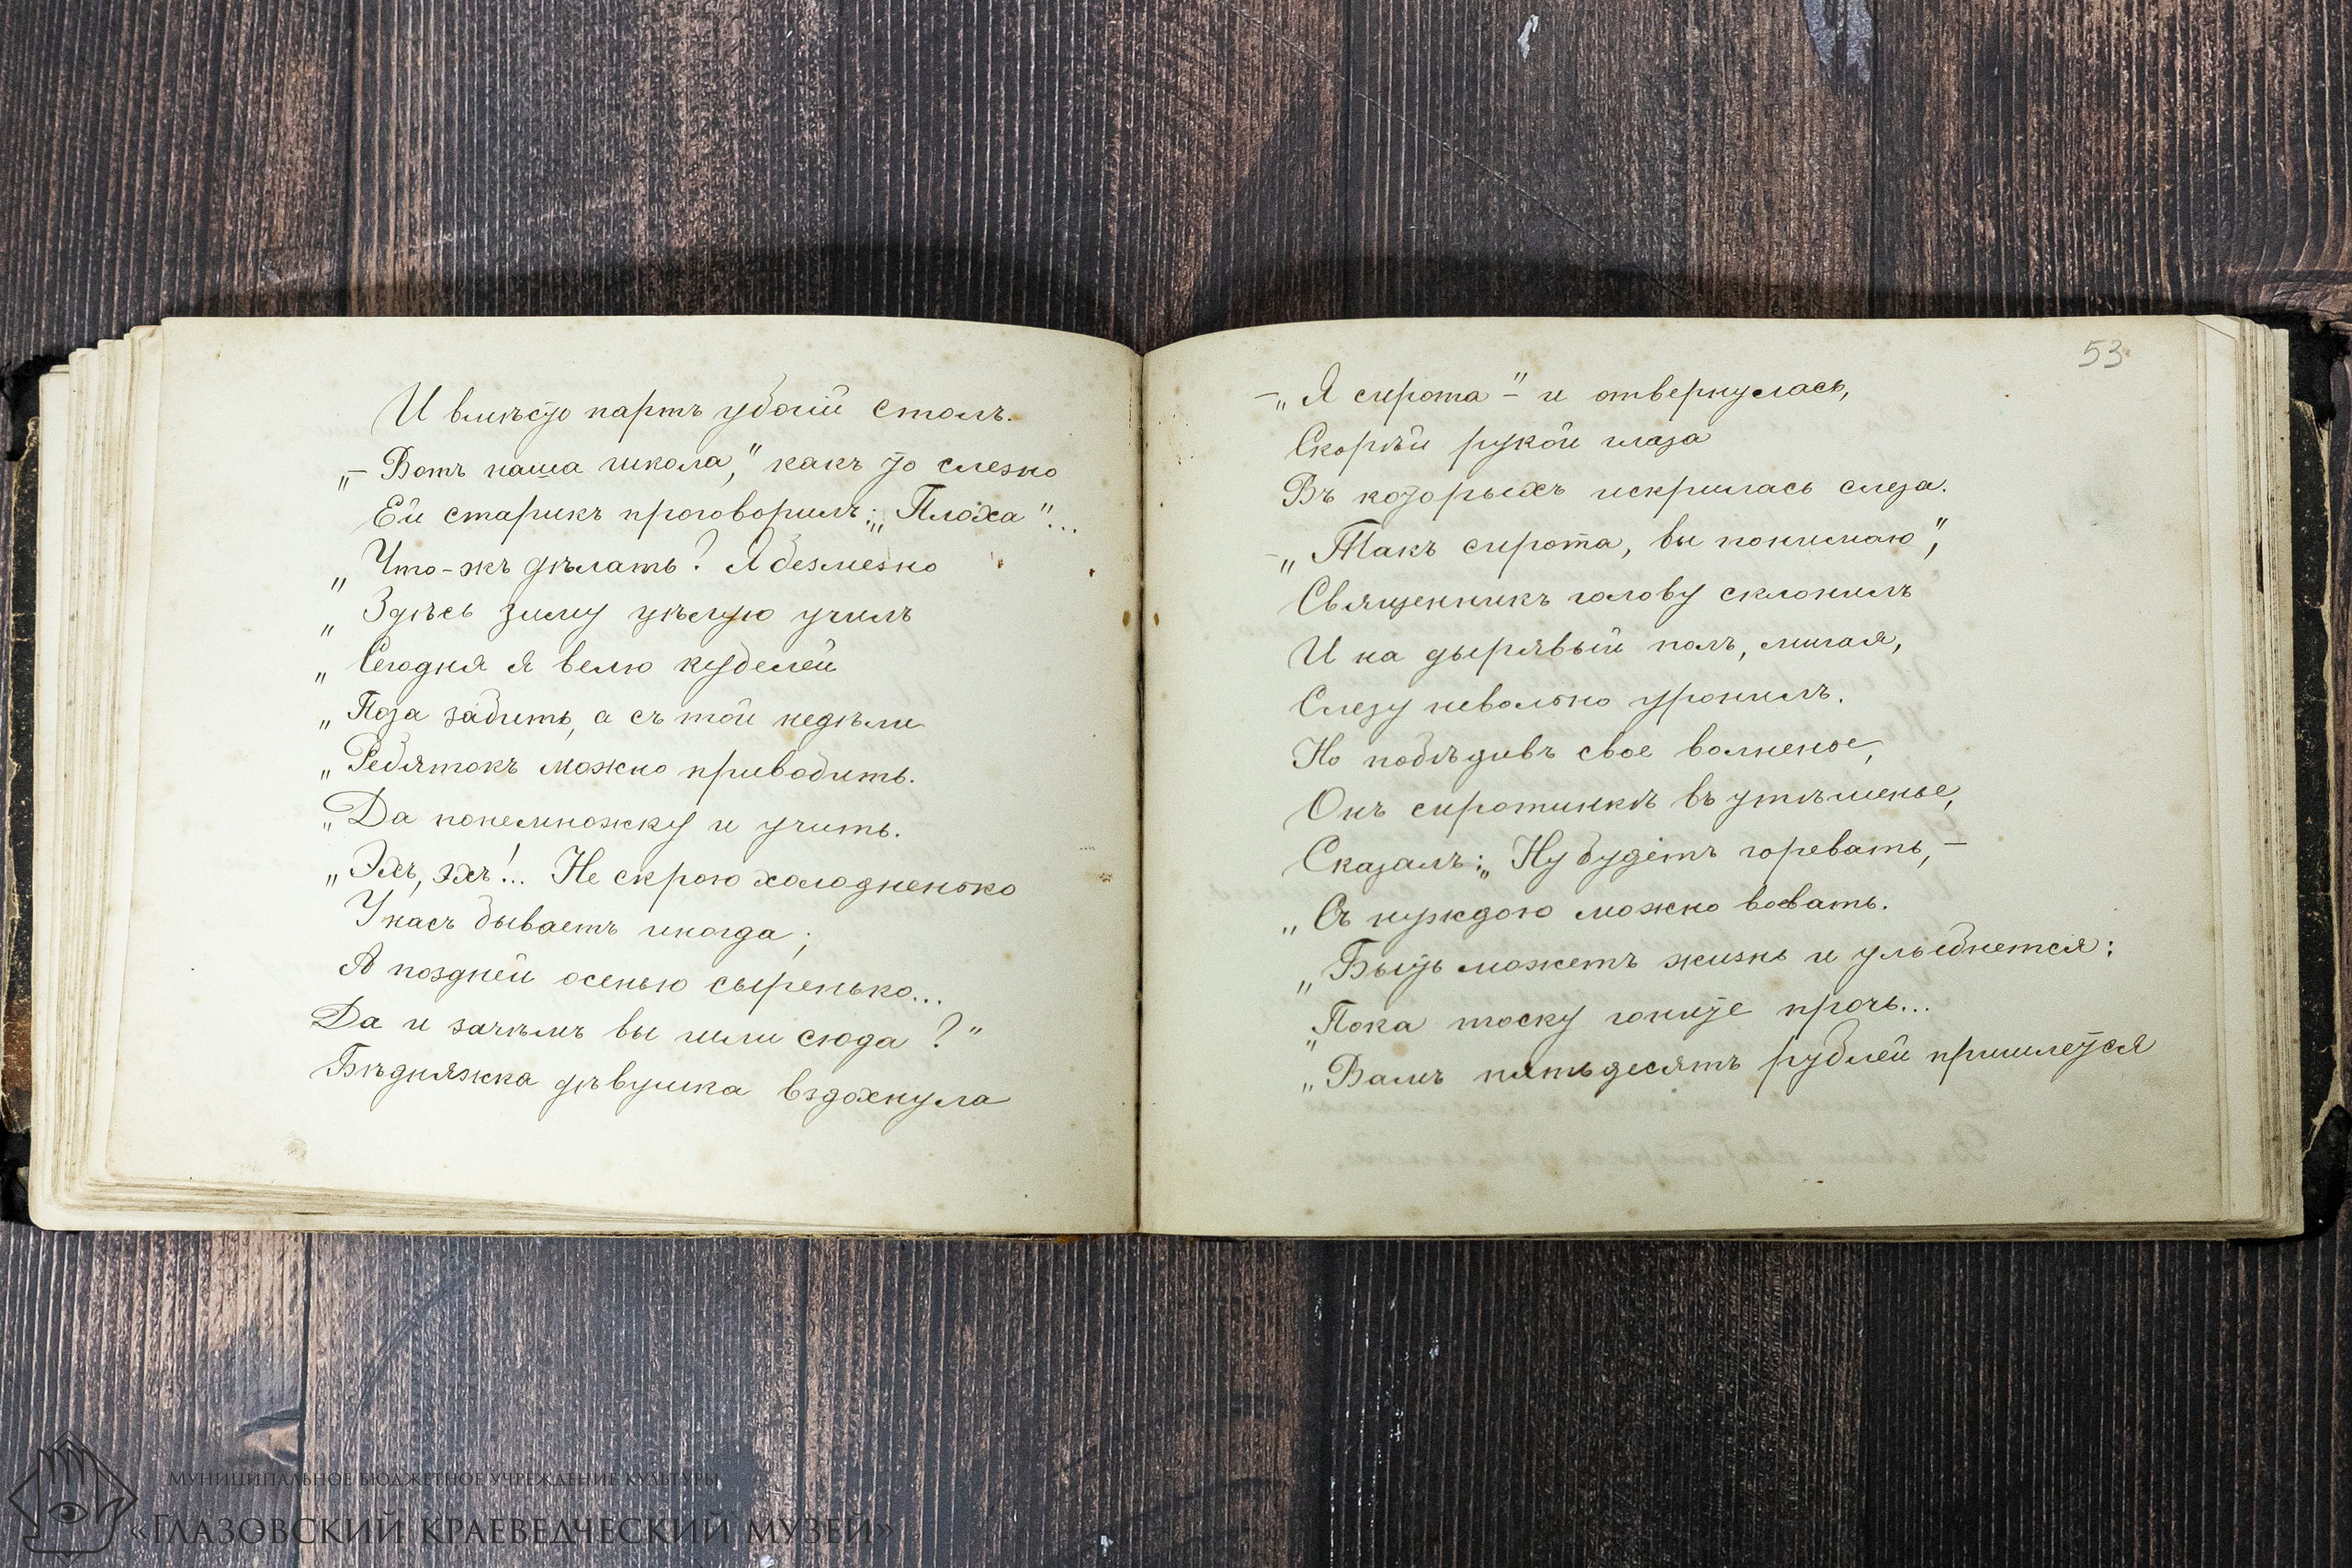 И вмѣсто партъ убогій столъ.
„– Вотъ наша школа," какъ то слезно
Ей старикъ проговорилъ: „Плоха"...
„Что-жъ дѣлать? Я безмезно
„Здѣсь зиму цѣлую училъ
„Сегодня я велю куделей
„Паза забить, а съ той недѣли
„Ребятокъ можно приводить.
„Да понемножку и учить.
„Эхъ, эхъ!.. Не скрою холодненько
У насъ бываетъ иногда;
А поздней осенью сыренько...
Да и зачѣмъ вы шли сюда?"
Бѣдняжка дѣвушка вздохнула
53
–„Я сирота –" и отвернулась,
Скорѣй рукой глаза
Въ которыхъ искрилась слеза.
–„Такъ сирота, вы понимаю",
Священникъ голову склонилъ
И на дырявый полъ, мигая,
Слезу невольно уронилъ.
Но побѣдивъ свое волненье,
Онъ сиротинкѣ въ утѣшенье,
Сказалъ: „Ну будетъ горевать,–
„Съ нуждою можно воевать.
„Быть можетъ жизнь и улыбнется:
„Пока тоску гоните прочь...
„Вамъ пятьдесятъ рублей пришлется
МУНИЦИПАЛЬНОЕ БЮДЖЕТНОЕ УЧРЕЖДЕНИЕ КУЛЬТУРЫ
«ГЛАЗОВСКИЙ КРАЕВЕДЧЕСКИЙ МУЗЕЙ»